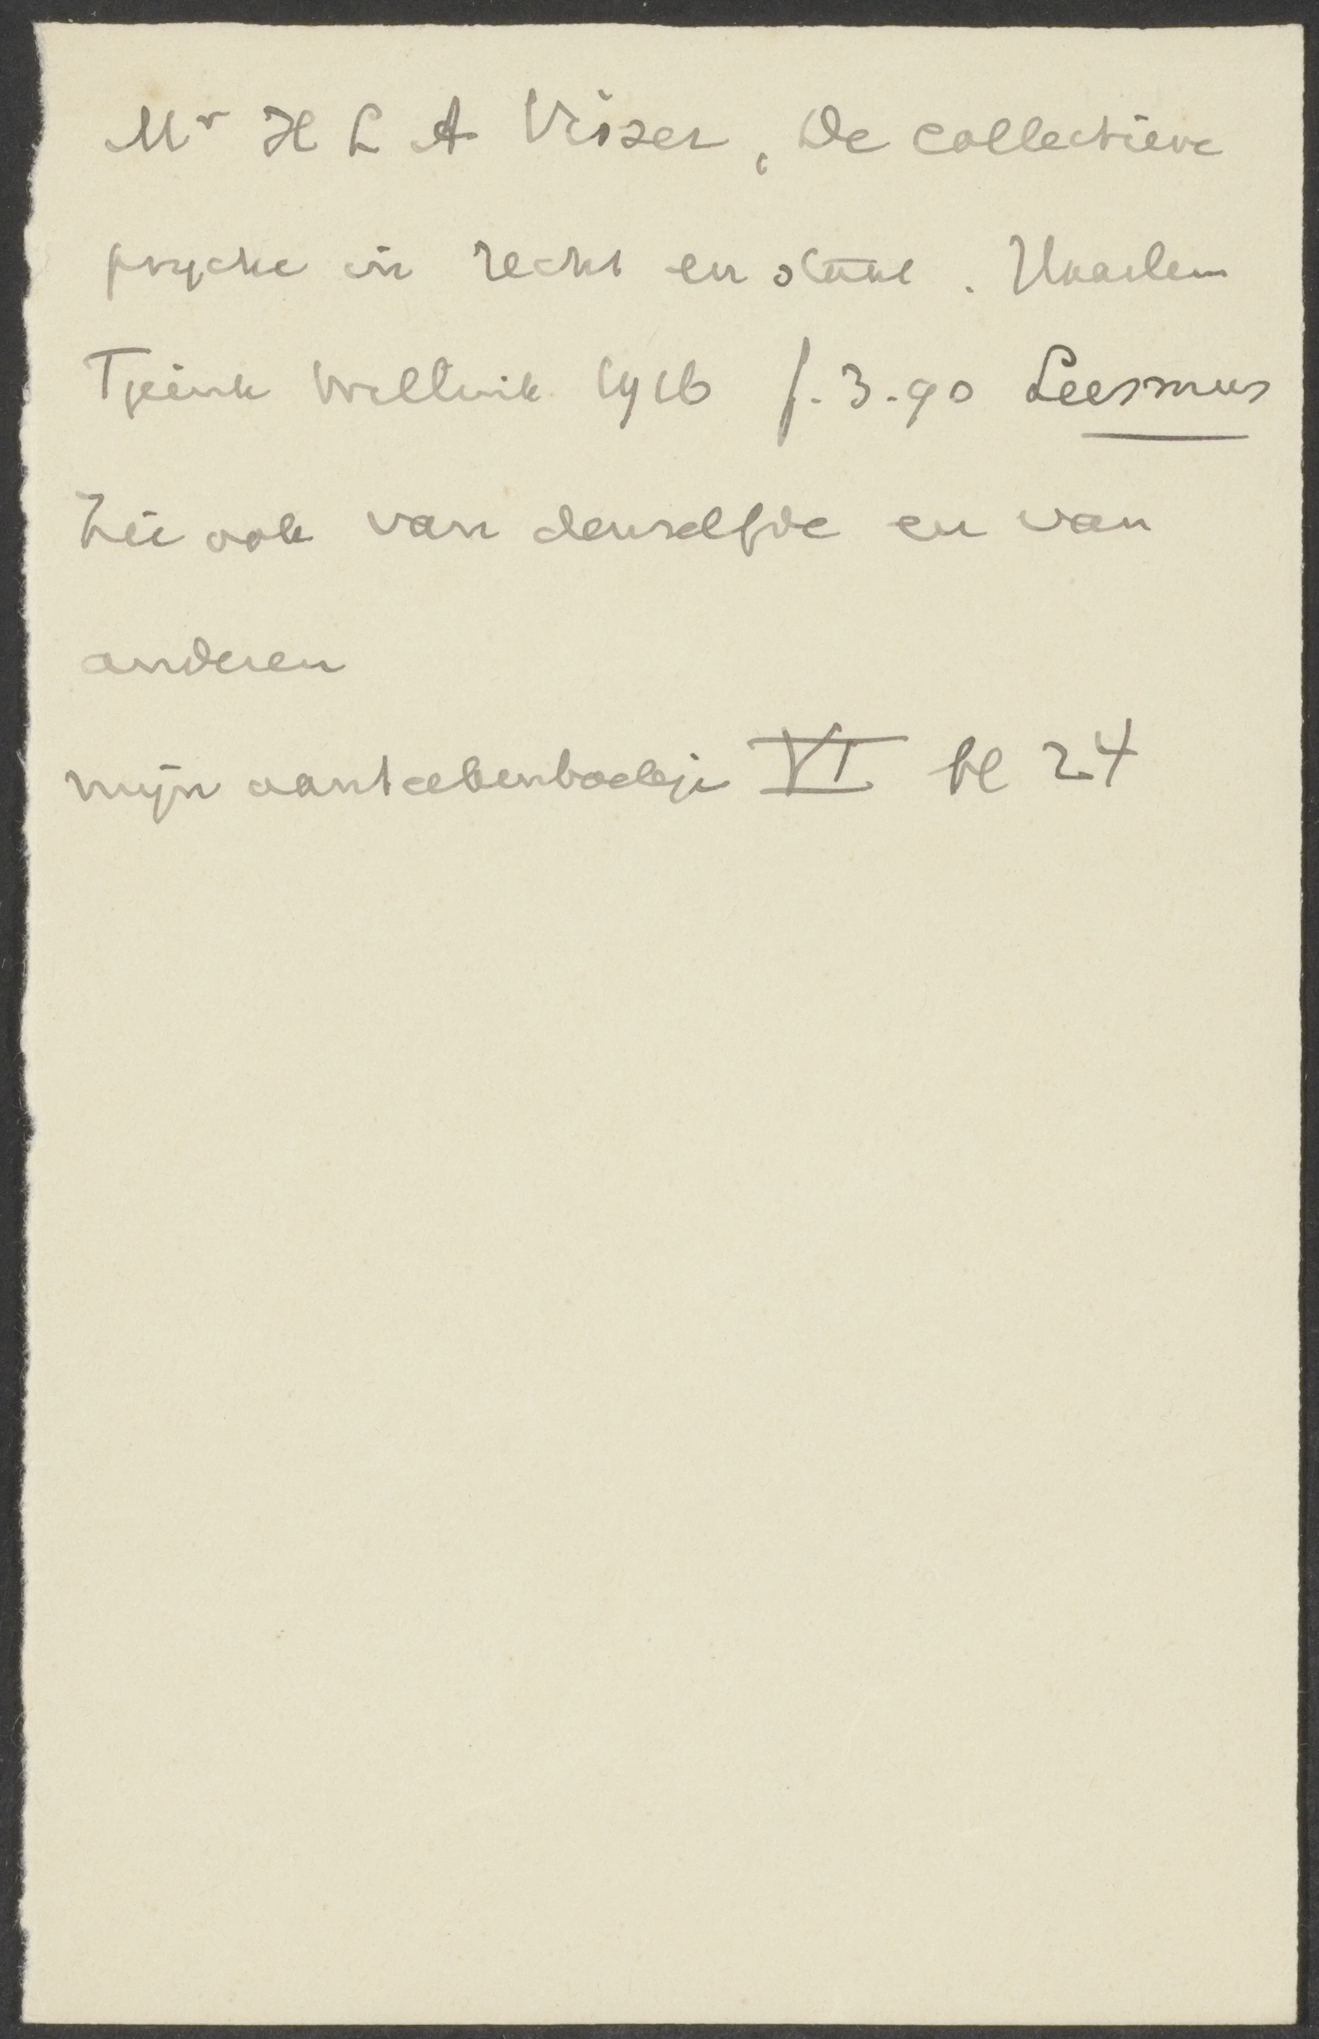 Mr H L A Visser, De collectieve
psyche in recht en staat. Haarlem
Tjeenk Willink 1916 f. 3.90 Leesmus
Zie ook van denzelfde en van
anderen
mijn aanteekenboekje VI bl 24